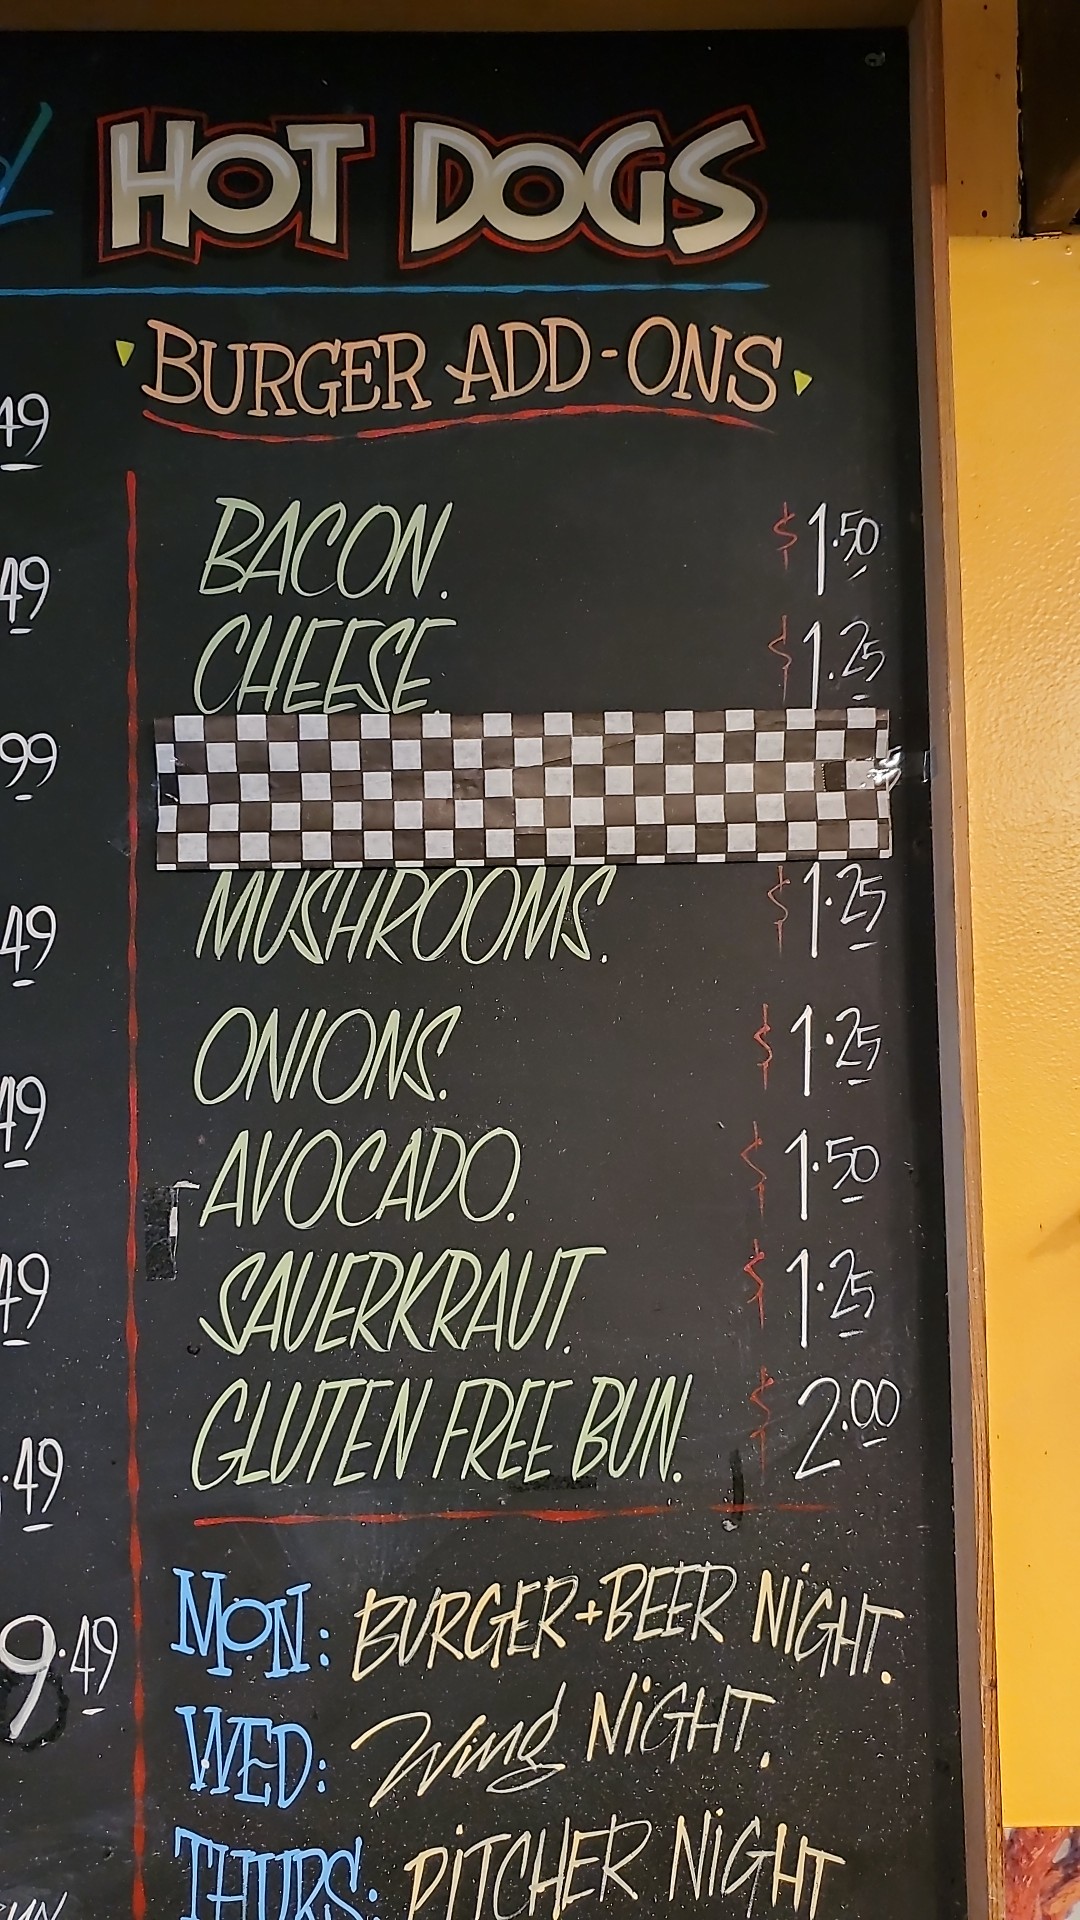 HOT DOGS
BURGER ADD-ONS
49
BACON. $1.50
49
CHEESE. $1.25
99
MUSHROOMS. $1.25
49
ONIONS. $1.25
49
AVOCADO. $1.50
49
SAUERKRAUT. $1.25
.49
GLUTEN FREE BUN. $2.00
9.49
MON: BURGER+BEER NIGHT.
WED: Wing NIGHT.
THURS: PITCHER NIGHT